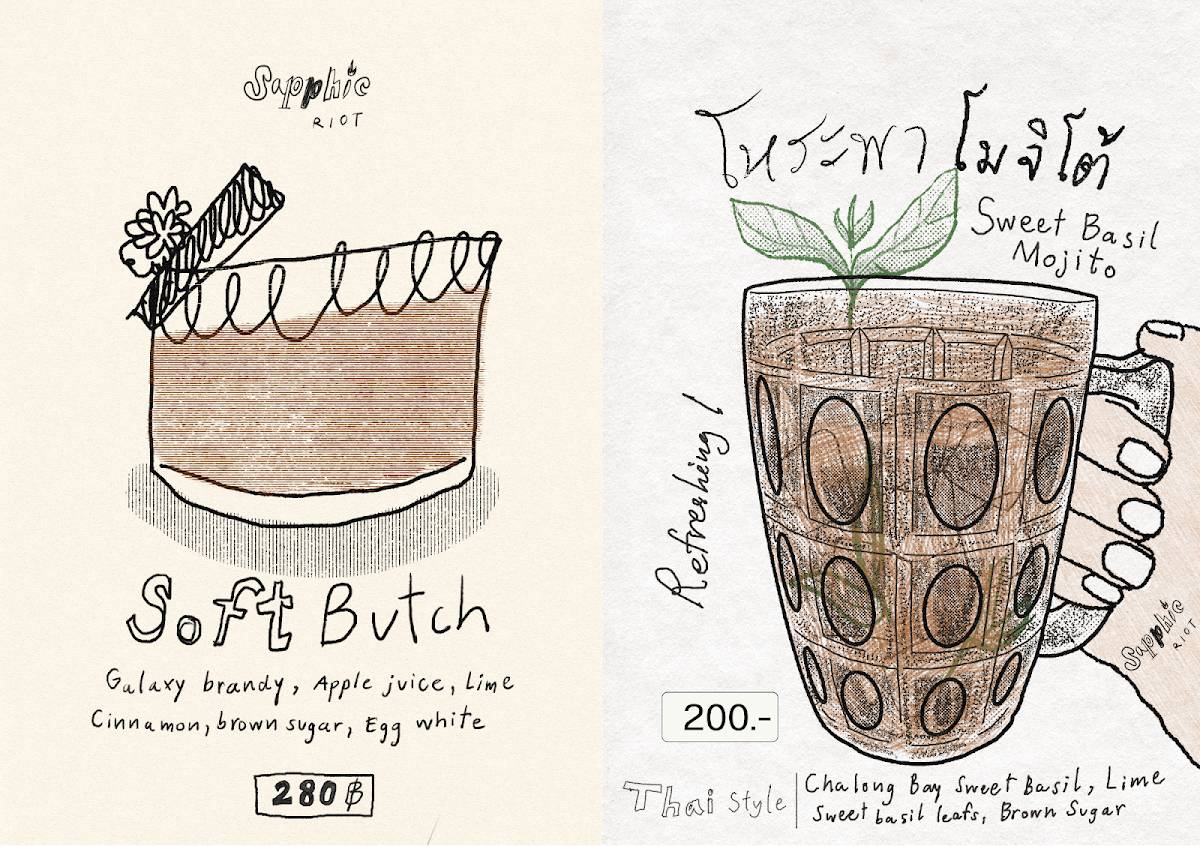 Sapphic
RIOT
Soft Butch
Galaxy brandy, Apple juice, Lime
Cinnamon, brown sugar, Egg white
280 ฿
โหระพา โมจิโต้
Sweet Basil
Mojito
Refreshing !
Sapphic
RIOT
200.-
Thai Style
Chalong Bay Sweet Basil, Lime
Sweet basil leafs, Brown Sugar